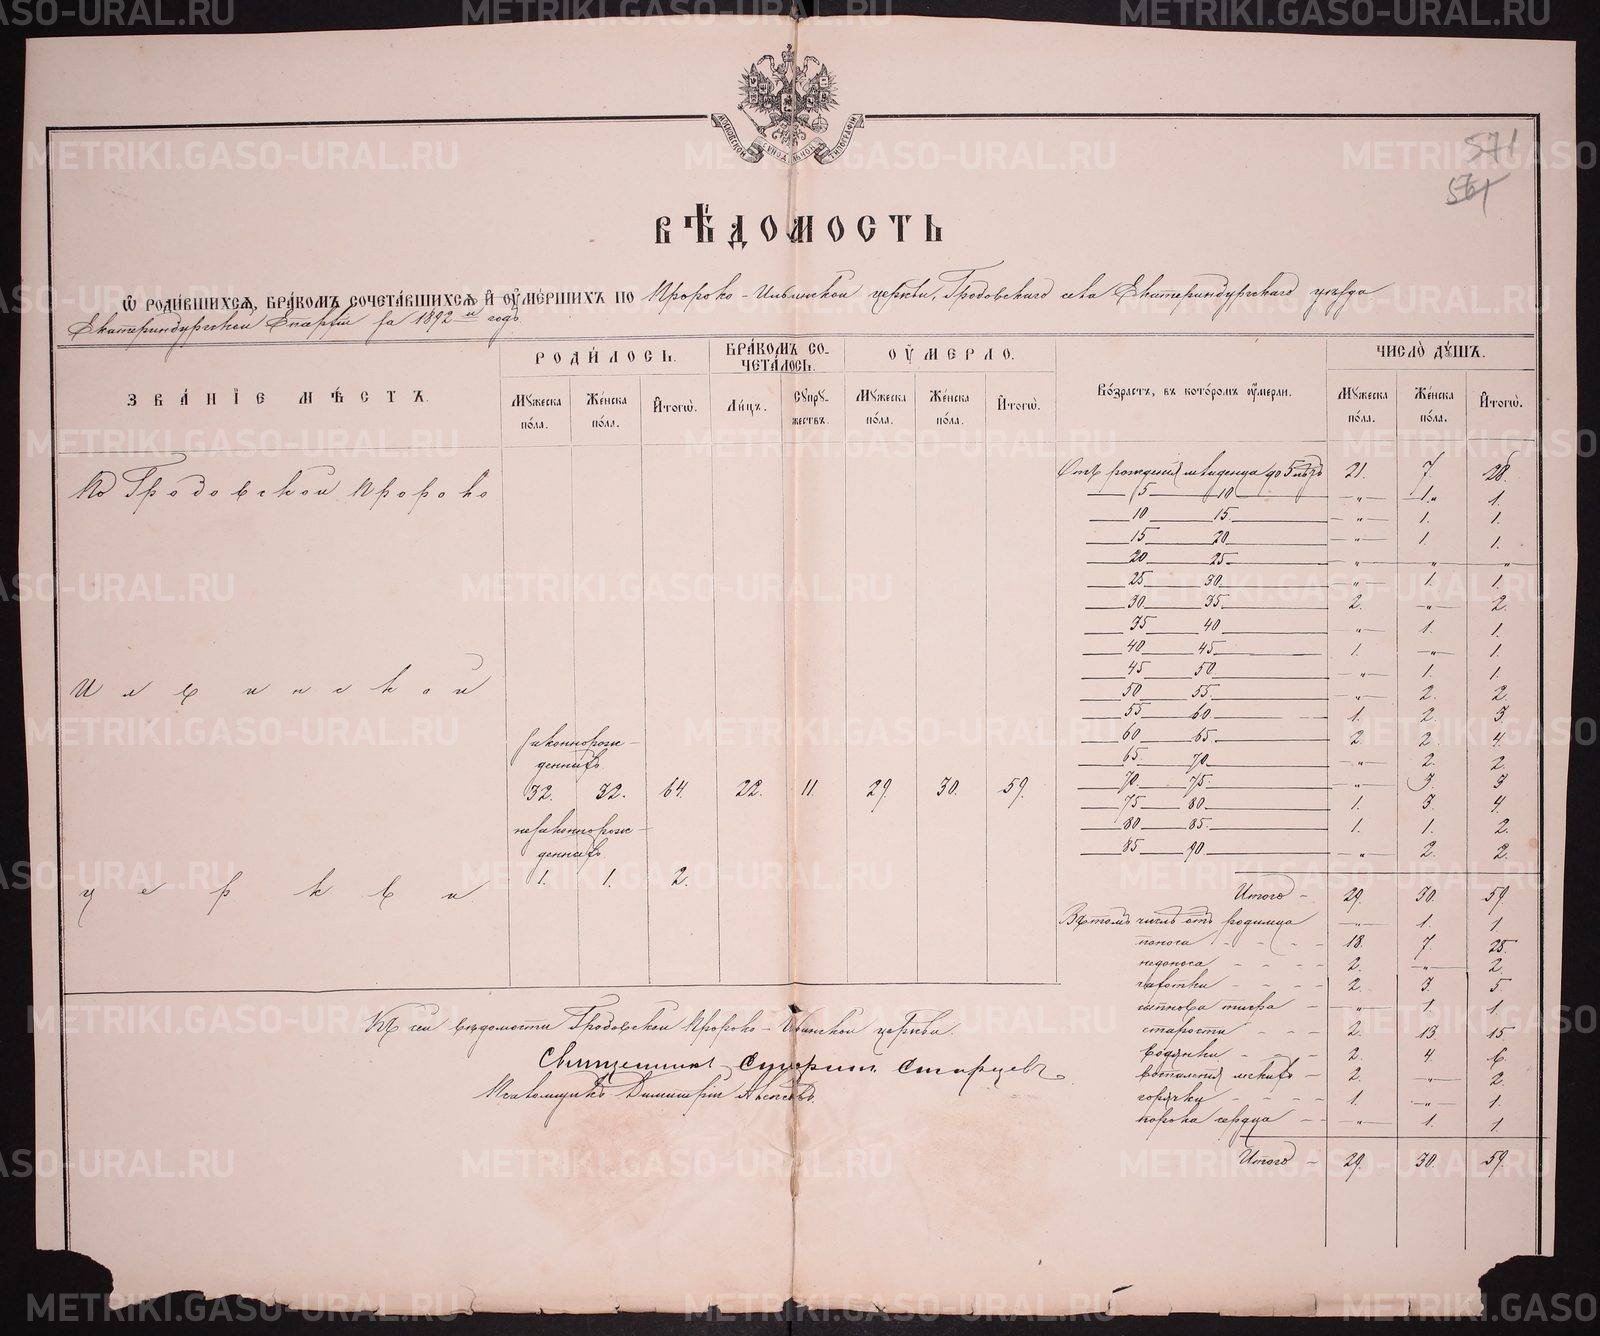 METRIKI.GASO-URAL.RU
МОСКОВСКОЙ СѴНОДАЛЬНОЙ ТИПОГРАФІИ
571
561
ВѢДОМОСТЬ
Ѡ РОДИВШИХСЯ, БРАКОМЪ СОЧЕТАВШИХСЯ И ОУМЕРШИХЪ ПО Пророко-Ильинской церкви, Гродовскаго села Екатеринбургскаго уѣзда
Екатеринбургской Епархіи за 1892й годъ
ЗВАНІЕ МѢСТЪ. РОДИЛОСЬ. БРАКОМЪ СОЧЕТАЛОСЬ. ОУМЕРЛО. Возрастъ, въ которомъ оумерли. ЧИСЛО ДУШЪ.
Мужеска пола. Женска пола. Итогѡ. Лицъ. Супружествъ. Мужеска пола. Женска пола. Итогѡ. Мужеска пола. Женска пола. Итогѡ.
По Гродовской Пророко
Ильинской
церкви
законнорожденныхъ
32. 32. 64. 22. 11. 29. 30. 59.
незаконнорожденныхъ
1. 1. 2.
Отъ рожденія младенца до 5 лѣтъ 21. 7. 28.
5 — 10 — „ 1. 1.
10 — 15. — „ 1. 1.
15 — 20. — „ 1. 1.
20 — 25. — „ „ „
25 — 30. — „ 1. 1.
30 — 35. — 2. „ 2.
35 — 40 — „ 1. 1.
40 — 45. — 1. „ 1.
45 — 50. — „ 1. 1.
50 — 55. — „ 2. 2.
55 — 60 — 1. 2. 3.
60 — 65. — 2. 2. 4.
65 — 70. — „ 2. 2.
70 — 75. — „ 3. 3
75 — 80. — 1. 3. 4.
80 — 85. — 1. 1. 2.
85 — 90. — „ 2. 2.
Итого – 29. 30. 59.
Въ томъ числѣ отъ родимца „ 1. 1.
поноса 18. 7. 25.
недоноса 2. „ 2.
чахотки 2. 3. 5.
тифа „ 1. 1.
старости 2. 13. 15.
водянки 2. 4. 6.
воспаленія легкихъ 2. „ 2.
горячки 1. „ 1.
порока сердца „ 1. 1.
Итого – 29. 30. 59.
Къ сей вѣдомости Гродовской Пророко-Ильинской церкви.
Священникъ Старцевъ
Псаломщикъ Димитрій